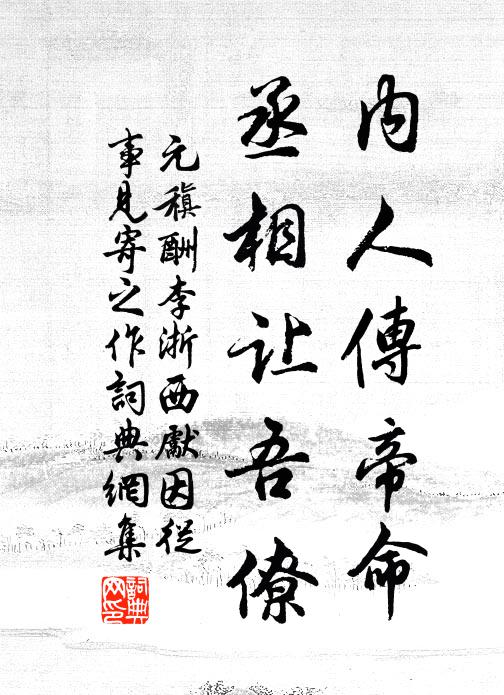 內人傳帝命
丞相让吾僚
元稹酬李浙西獻因從
事見寄之作詞典網集
詞典网印